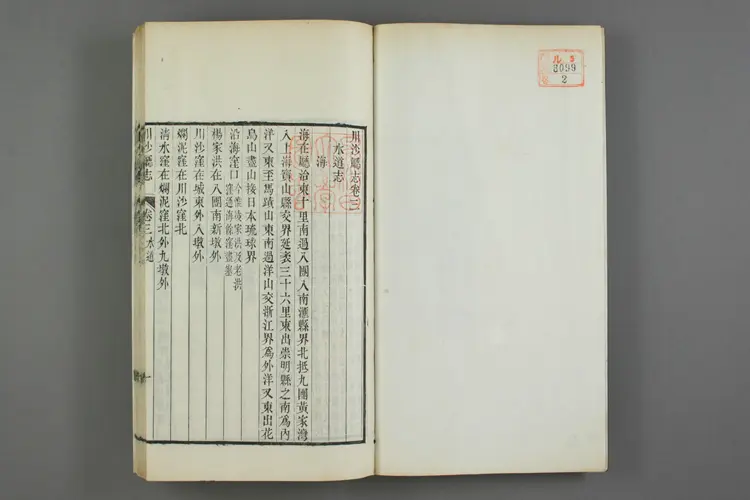 川沙廳志卷三
水道志
海
海在廳治東十里南過八團入南滙縣界北抵九團黃家灣
入上海寶山縣交界延袤三十六里東出崇明縣之南爲內
洋又東至馬蹟山東南過洋山交浙江界爲外洋又東出花
鳥山盡山接日本琉球界
沿海窪口
楊家洪在八團南新墩外
川沙窪在城東外八墩外
爛泥窪在川沙窪北
清水窪在爛泥窪北外九墩外
川沙廳志
卷三 水道
一
8099
2